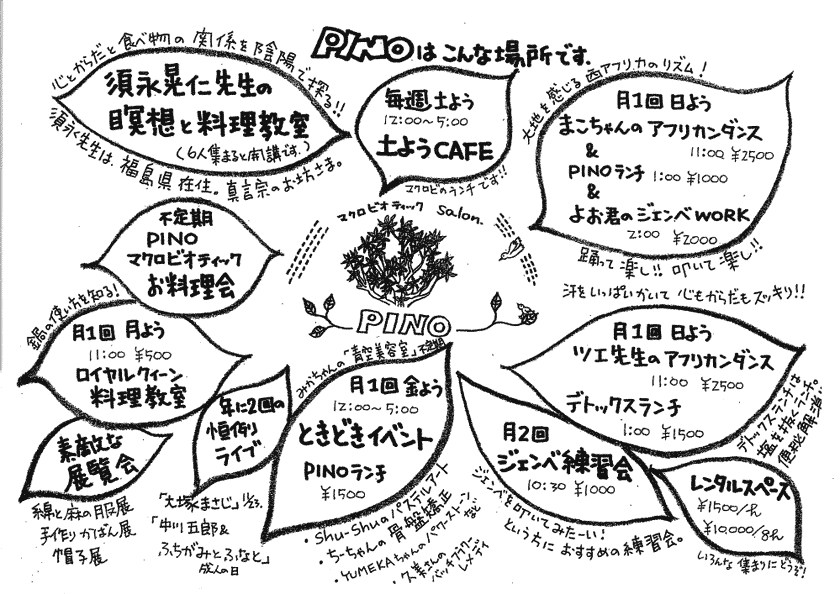 PINOはこんな場所です.
心とからだと食べ物の関係を陰陽で探る!!
須永晃仁先生の
瞑想と料理教室
(6人集まると開講です.)
須永先生は、福島県在住。真言宗のお坊さま。
毎週土よう
12:00~5:00
土ようCAFE
マクロビのランチです!!
大地を感じる西アフリカのリズム!
月1回 日よう
まこちゃんのアフリカンダンス
11:00 ¥2500
&
PINOランチ 1:00 ¥1000
&
よお君のジェンベWORK
2:00 ¥2000
踊って楽し!! 叩いて楽し!!
汗をいっぱいかいて 心もからだもスッキリ!!
不定期
PINO
マクロビオティック
お料理会
マクロビオティック salon.
PINO
鍋の使い方を知る!
月1回 月よう
11:00 ¥500
ロイヤルクィーン
料理教室
素敵な
展覧会
綿と麻の服展
手作りかばん展
帽子展
年に2回の
恒例
ライブ
「大塚まさじ」11/23.
「中川五郎&
ふちがみとふなと」
成人の日
みかちゃんの「青空美容室」不定期
月1回 金よう
12:00~5:00
ときどきイベント
PINOランチ
¥1500
・shu-shuのパステルアート
・ちーちゃんの骨盤矯正
・YUMEKAちゃんのパワーストーン
など
・久美さんの
バッチフラワー
レメディ
月2回
ジェンベ練習会
10:30 ¥1000
ジェンベを叩いてみたーい!
というちにおすすめの練習会。
月1回 日よう
ツエ先生のアフリカンダンス
11:00 ¥2500
デトックスランチ
1:00 ¥1500
デトックスランチは
塩を抜くランチ。
便秘解消!
レンタルスペース
¥1500/h
¥10,000/8h
いろんな集まりにどうぞ!